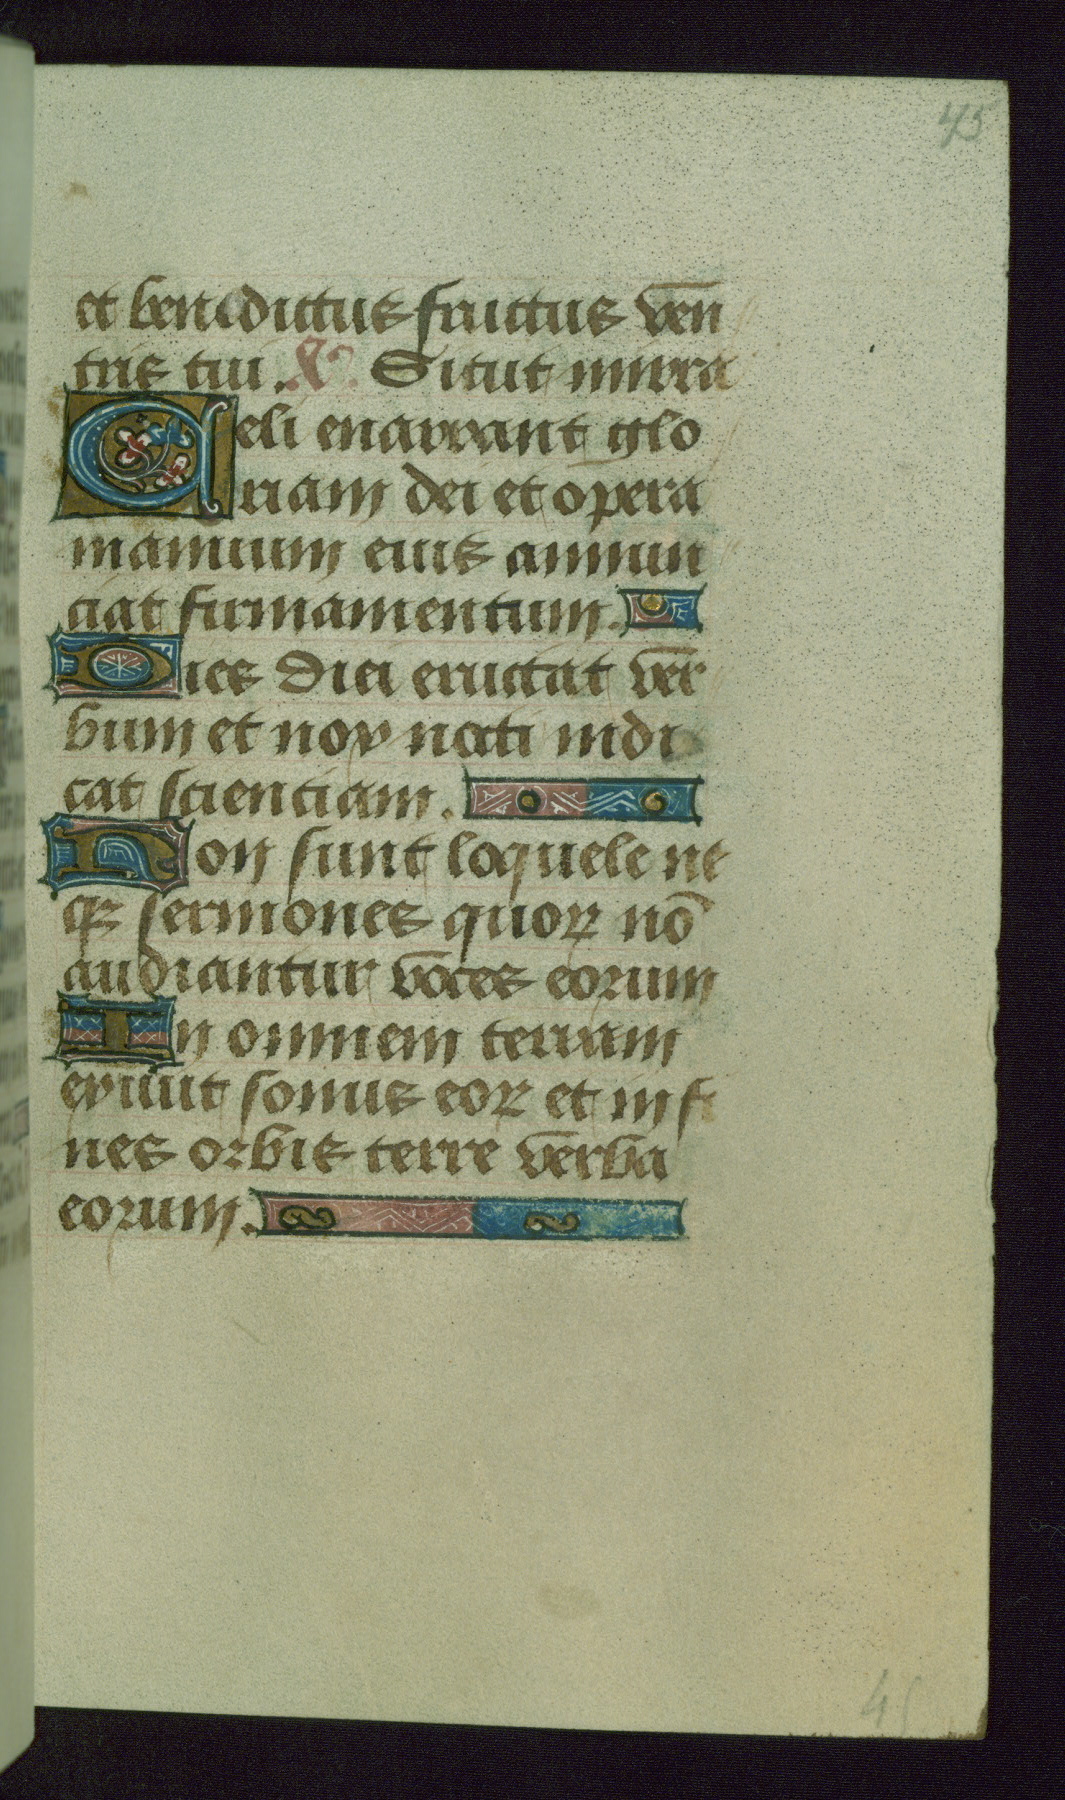 45
et benedictus fructus ven
tris tui. A? Sicut mirra
Celi enarrant glo
riam dei et opera
manuum eius annun
ciat firmamentum.
Dies diei eructat ver
bum et nox nocti indi
cat scientiam.
Non sunt loquele ne
qꝫ sermones quoꝝ nō
audiantur voces eorum
In omnem terram
exiuit sonus eoꝝ et in fi
nes orbis terre verba
eorum.
45